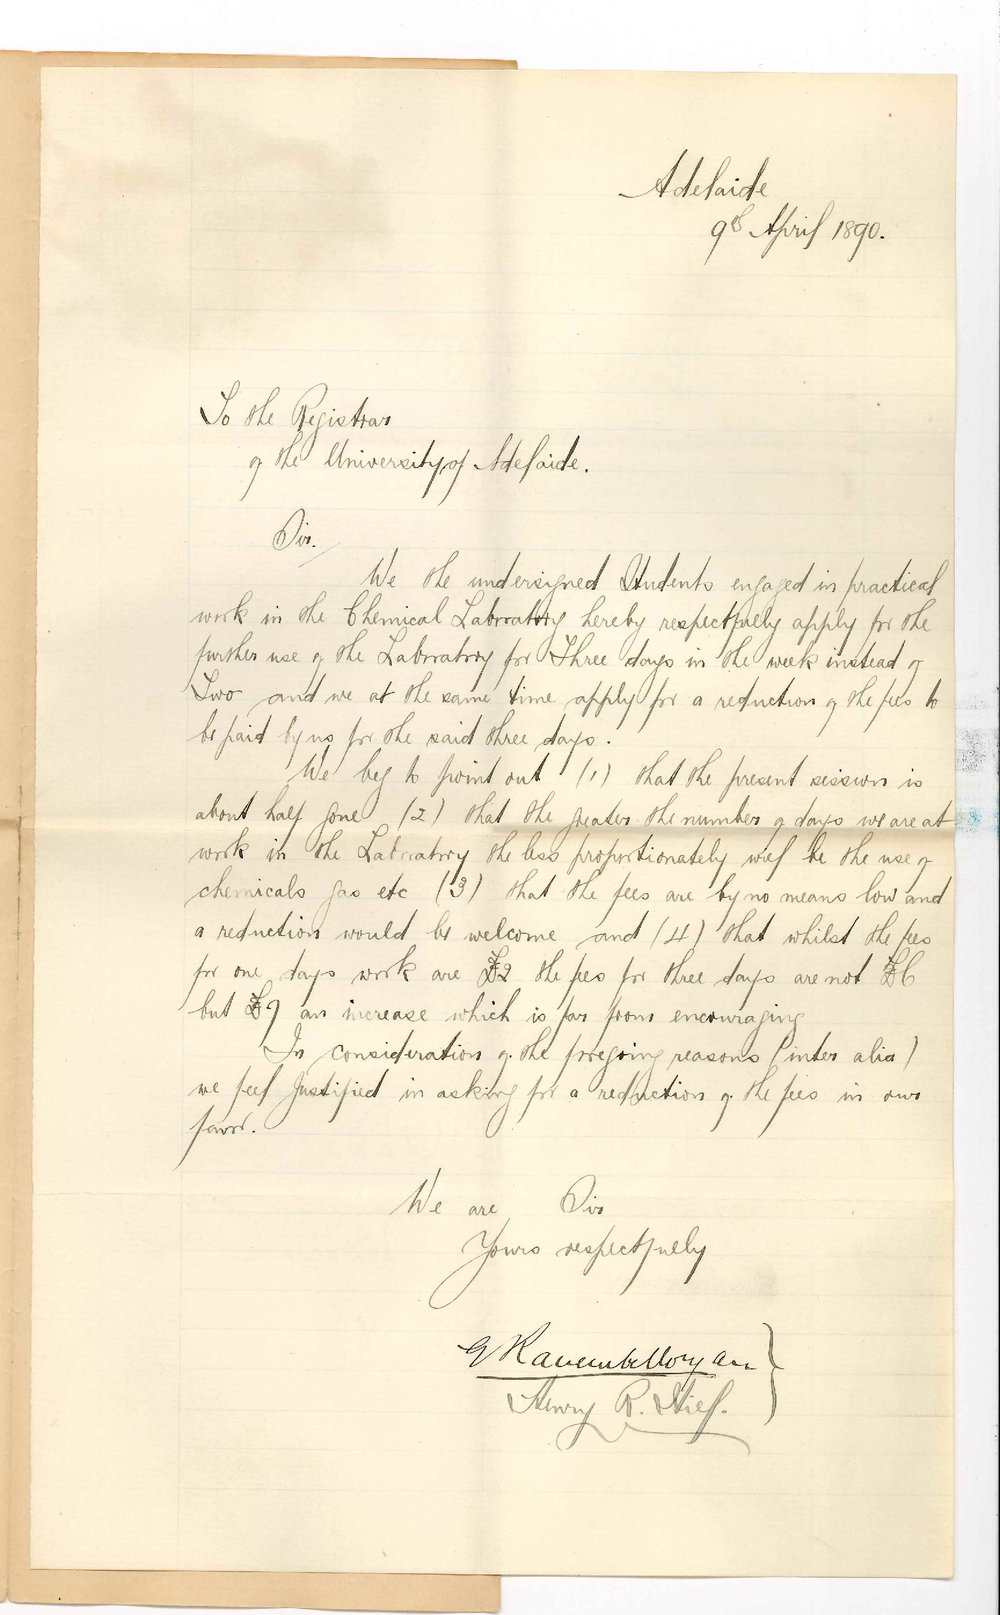 Adelaide
9th April 1890.
To the Registrar
of the University of Adelaide.
Sir.
We the undersigned Students engaged in practical
work in the Chemical Laboratory hereby respectfully apply for the
further use of the Laboratory for Three days in the week instead of
Two and we at the same time apply for a reduction of the fees to
be paid by us for the said three days.
We beg to point out (1) that the present session is
about half gone (2) that the greater the number of days we are at
work in the Laboratory the less proportionately will be the use of
chemicals gas etc (3) that the fees are by no means low and
a reduction would be welcome and (4) that whilst the fees
for one days work are £2 the fees for three days are not £6
but £9 an increase which is far from encouraging
In consideration of the foregoing reasons (inter alia)
we feel justified in asking for a reduction of the fees in our
favor.
We are Sir
Yours respectfully
Henry R.